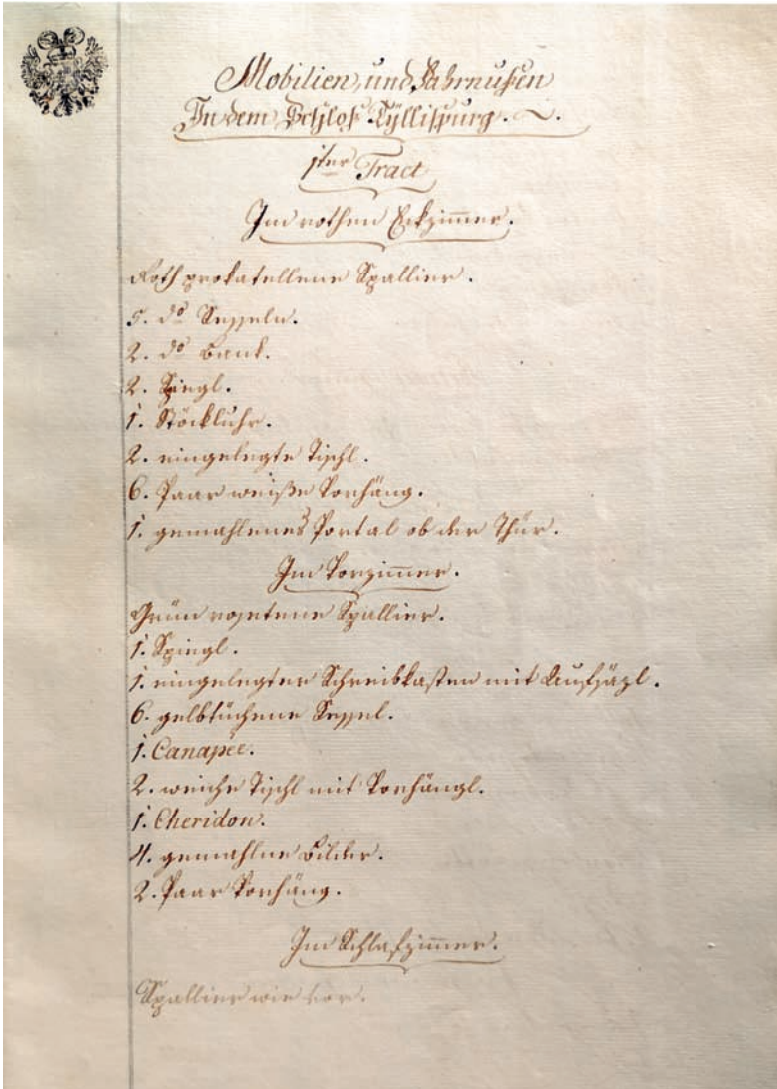 Mobilien, und Fahrnußen
In dem Schloß Tÿllispurg.
1ter Tract
Im rothen Eckzimmer.
Roth prokatellene Spallier.
5. do Sesseln.
2. do Bank.
2. Spiegl.
1. Stöckluhr.
2. eingelegte Tischl.
6. Paar weiße Vorhäng.
1. gemahlenes Portal ob der Thür.
Im Vorzimmer.
Grün rosetene Spallier.
1. Spiegl.
1. eingelegter Schreibkasten mit Aufsäzl.
6. gelbtüchene Sessel.
1. Canapée.
2. weiche Tischl mit Vorhängl.
1. Cheridon.
4. gemahlne Bilder.
2. Paar Vorhäng.
Im Schlafzimmer.
Spallier wie vor.